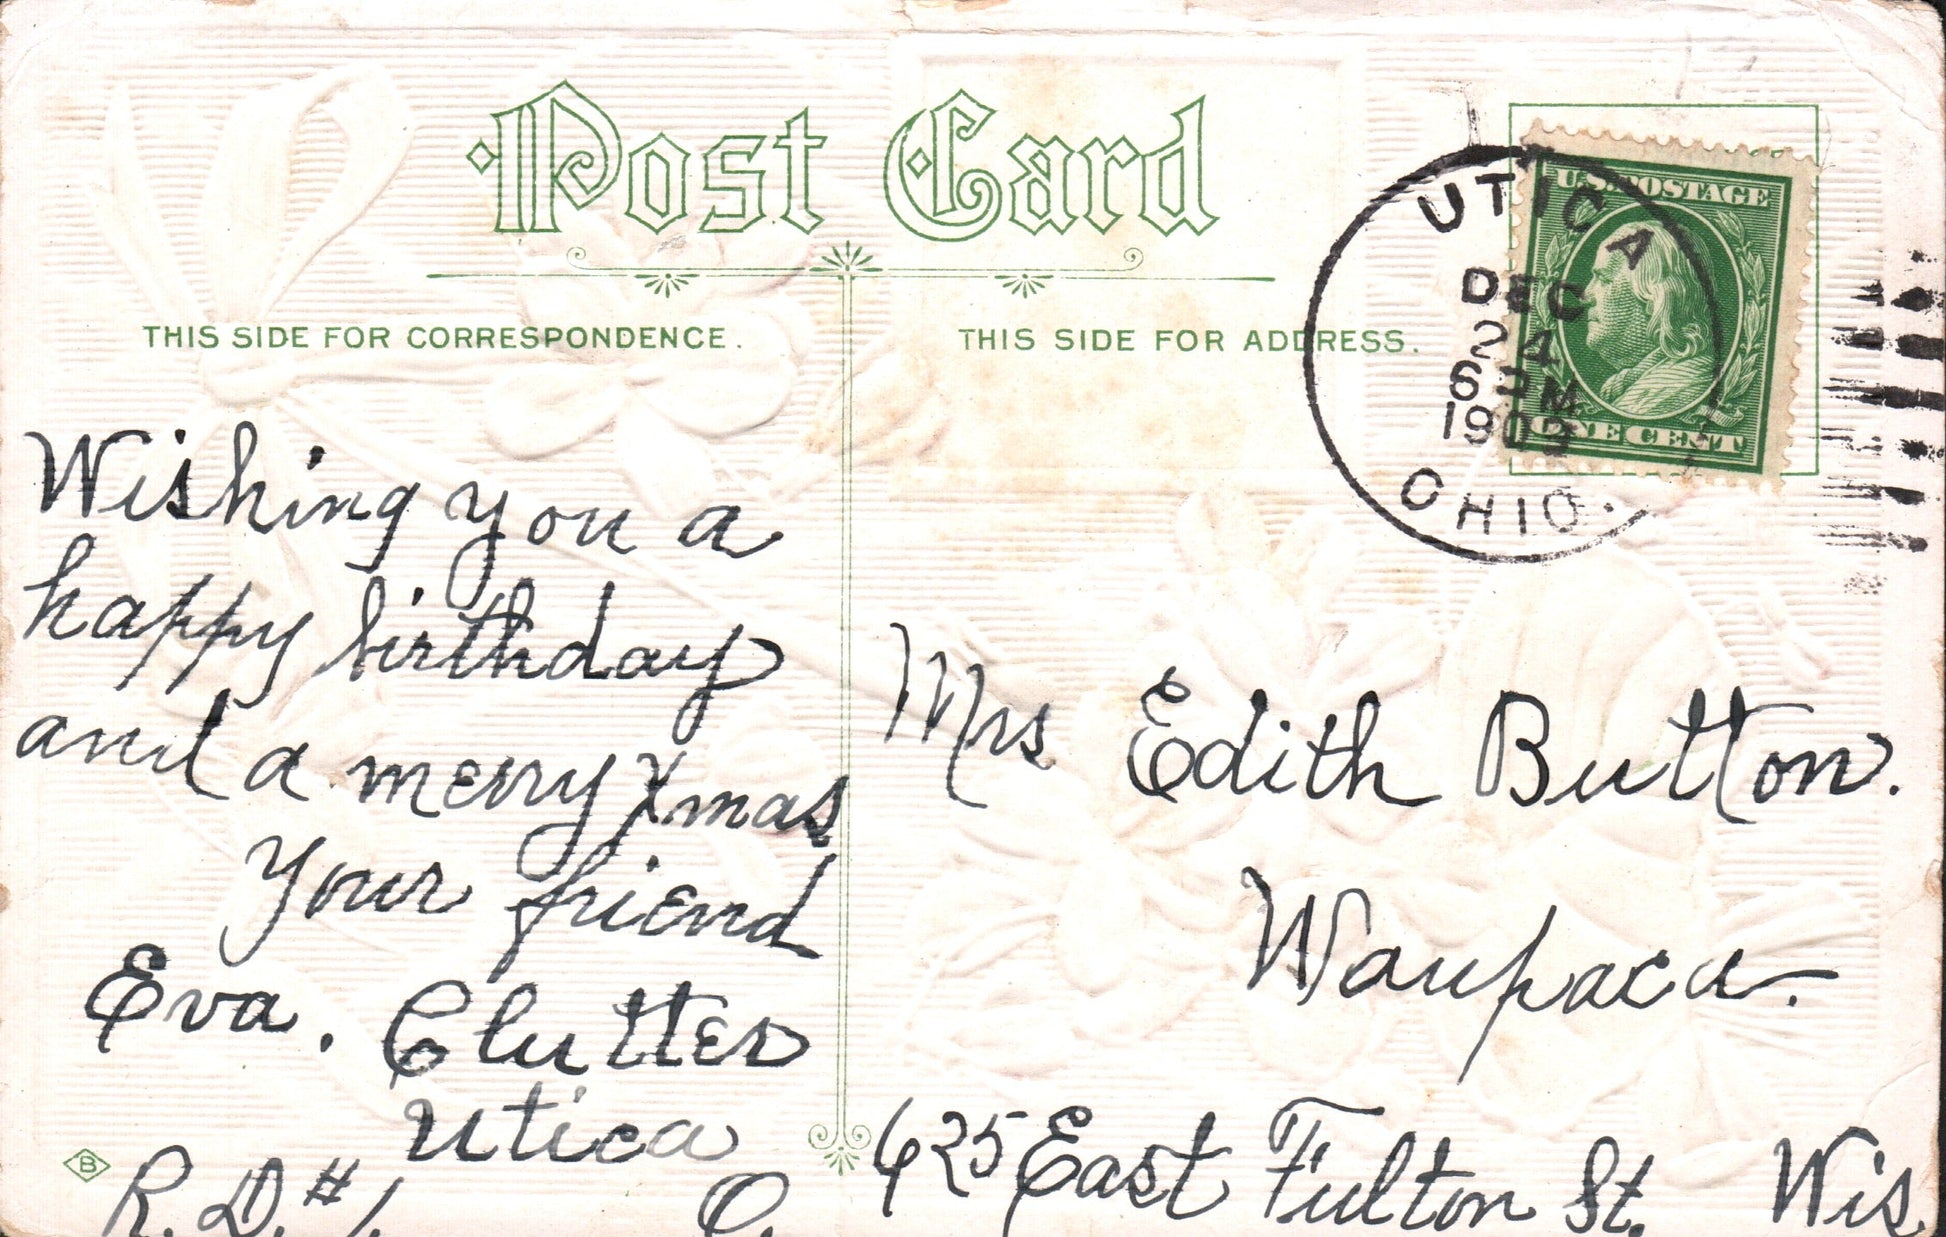 Post Card
THIS SIDE FOR CORRESPONDENCE.
THIS SIDE FOR ADDRESS.
U.S. POSTAGE
ONE CENT
UTICA
DEC
24
6 PM
1909
OHIO.
Wishing you a
happy birthday
and a merry Xmas
Your friend
Eva. Clutter
Utica
R.D. #1. O.
B
Mrs Edith Button.
Waupaca.
425 East Fulton St. Wis.